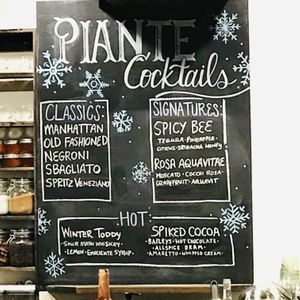 PIANTE
Cocktails
CLASSICS:
MANHATTAN
OLD FASHIONED
NEGRONI
SBAGLIATO
SPRITZ VENEZIANO
SIGNATURES:
SPICY BEE
TEQUILA · PINEAPPLE ·
CITRUS · SRIRACHA HONEY
ROSA AQUAVITAE
MOSCATO · COCCHI ROSA ·
GRAPEFRUIT · AQUAVIT
· HOT: ·
WINTER TODDY
SOUR MASH WHISKEY
· LEMON · SYRUP ·
SPIKED COCOA
· BAILEYS · HOT CHOCOLATE ·
ALLSPICE DRAM ·
· AMARETTO · WHIPPED CREAM ·